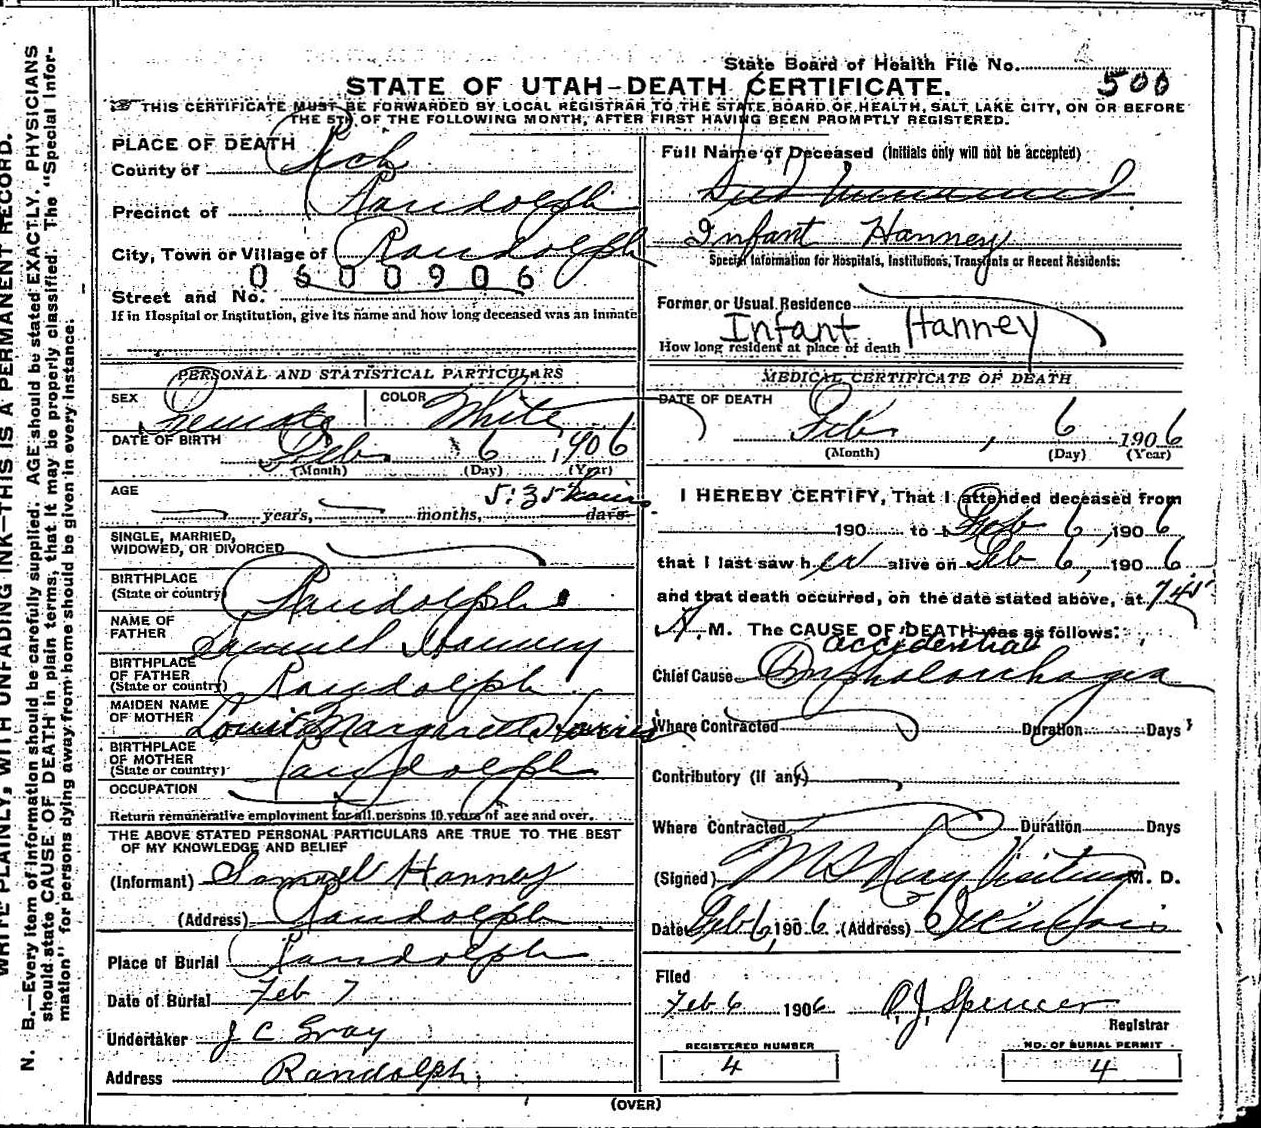 WRITE PLAINLY, WITH UNFADING INK—THIS IS A PERMANENT RECORD.
N. B.—Every item of information should be carefully supplied. AGE should be stated EXACTLY. PHYSICIANS
should state CAUSE OF DEATH in plain terms, that it may be properly classified. The "Special Infor-
mation" for persons dying away from home should be given in every instance.
State Board of Health File No. 500
STATE OF UTAH—DEATH CERTIFICATE.
THIS CERTIFICATE MUST BE FORWARDED BY LOCAL REGISTRAR TO THE STATE BOARD OF HEALTH, SALT LAKE CITY, ON OR BEFORE
THE 5TH OF THE FOLLOWING MONTH, AFTER FIRST HAVING BEEN PROMPTLY REGISTERED.
PLACE OF DEATH
County of Rich
Precinct of Randolph
City, Town or Village of Randolph
0600906
Street and No.
If in Hospital or Institution, give its name and how long deceased was an inmate
PERSONAL AND STATISTICAL PARTICULARS
SEX Female COLOR White
DATE OF BIRTH Feb 6, 1906
(Month) (Day) (Year)
AGE 5:35 hours
years, months, days
SINGLE, MARRIED,
WIDOWED, OR DIVORCED
BIRTHPLACE
(State or country) Randolph
NAME OF
FATHER Samuel Hanney
BIRTHPLACE
OF FATHER
(State or country) Randolph
MAIDEN NAME
OF MOTHER Margaret
BIRTHPLACE
OF MOTHER
(State or country) Randolph
OCCUPATION
Return remunerative employment for all persons 10 years of age and over.
THE ABOVE STATED PERSONAL PARTICULARS ARE TRUE TO THE BEST
OF MY KNOWLEDGE AND BELIEF
(Informant) Samuel Hanney
(Address) Randolph
Place of Burial Randolph
Date of Burial Feb 7
Undertaker J C Gray
Address Randolph
Full Name of Deceased (Initials only will not be accepted)
Infant Hanney
Special Information for Hospitals, Institutions, Transients or Recent Residents:
Former or Usual Residence
Infant Hanney
How long resident at place of death
MEDICAL CERTIFICATE OF DEATH
DATE OF DEATH
Feb, 6 1906
(Month) (Day) (Year)
I HEREBY CERTIFY, That I attended deceased from
190 to Feb 6, 1906
that I last saw her alive on Feb 6, 1906
and that death occurred, on the date stated above, at 7 45
A M. The CAUSE OF DEATH was as follows:
accidential
Chief Cause Omphalorrhagia
Where Contracted Duration Days
Contributory (if any)
Where Contracted Duration Days
(Signed) Visiting M. D.
Date Feb 6, 1906 (Address)
Filed
Feb 6 1906 O. J. Spencer
Registrar
REGISTERED NUMBER
4
NO. OF BURIAL PERMIT
4
(OVER)